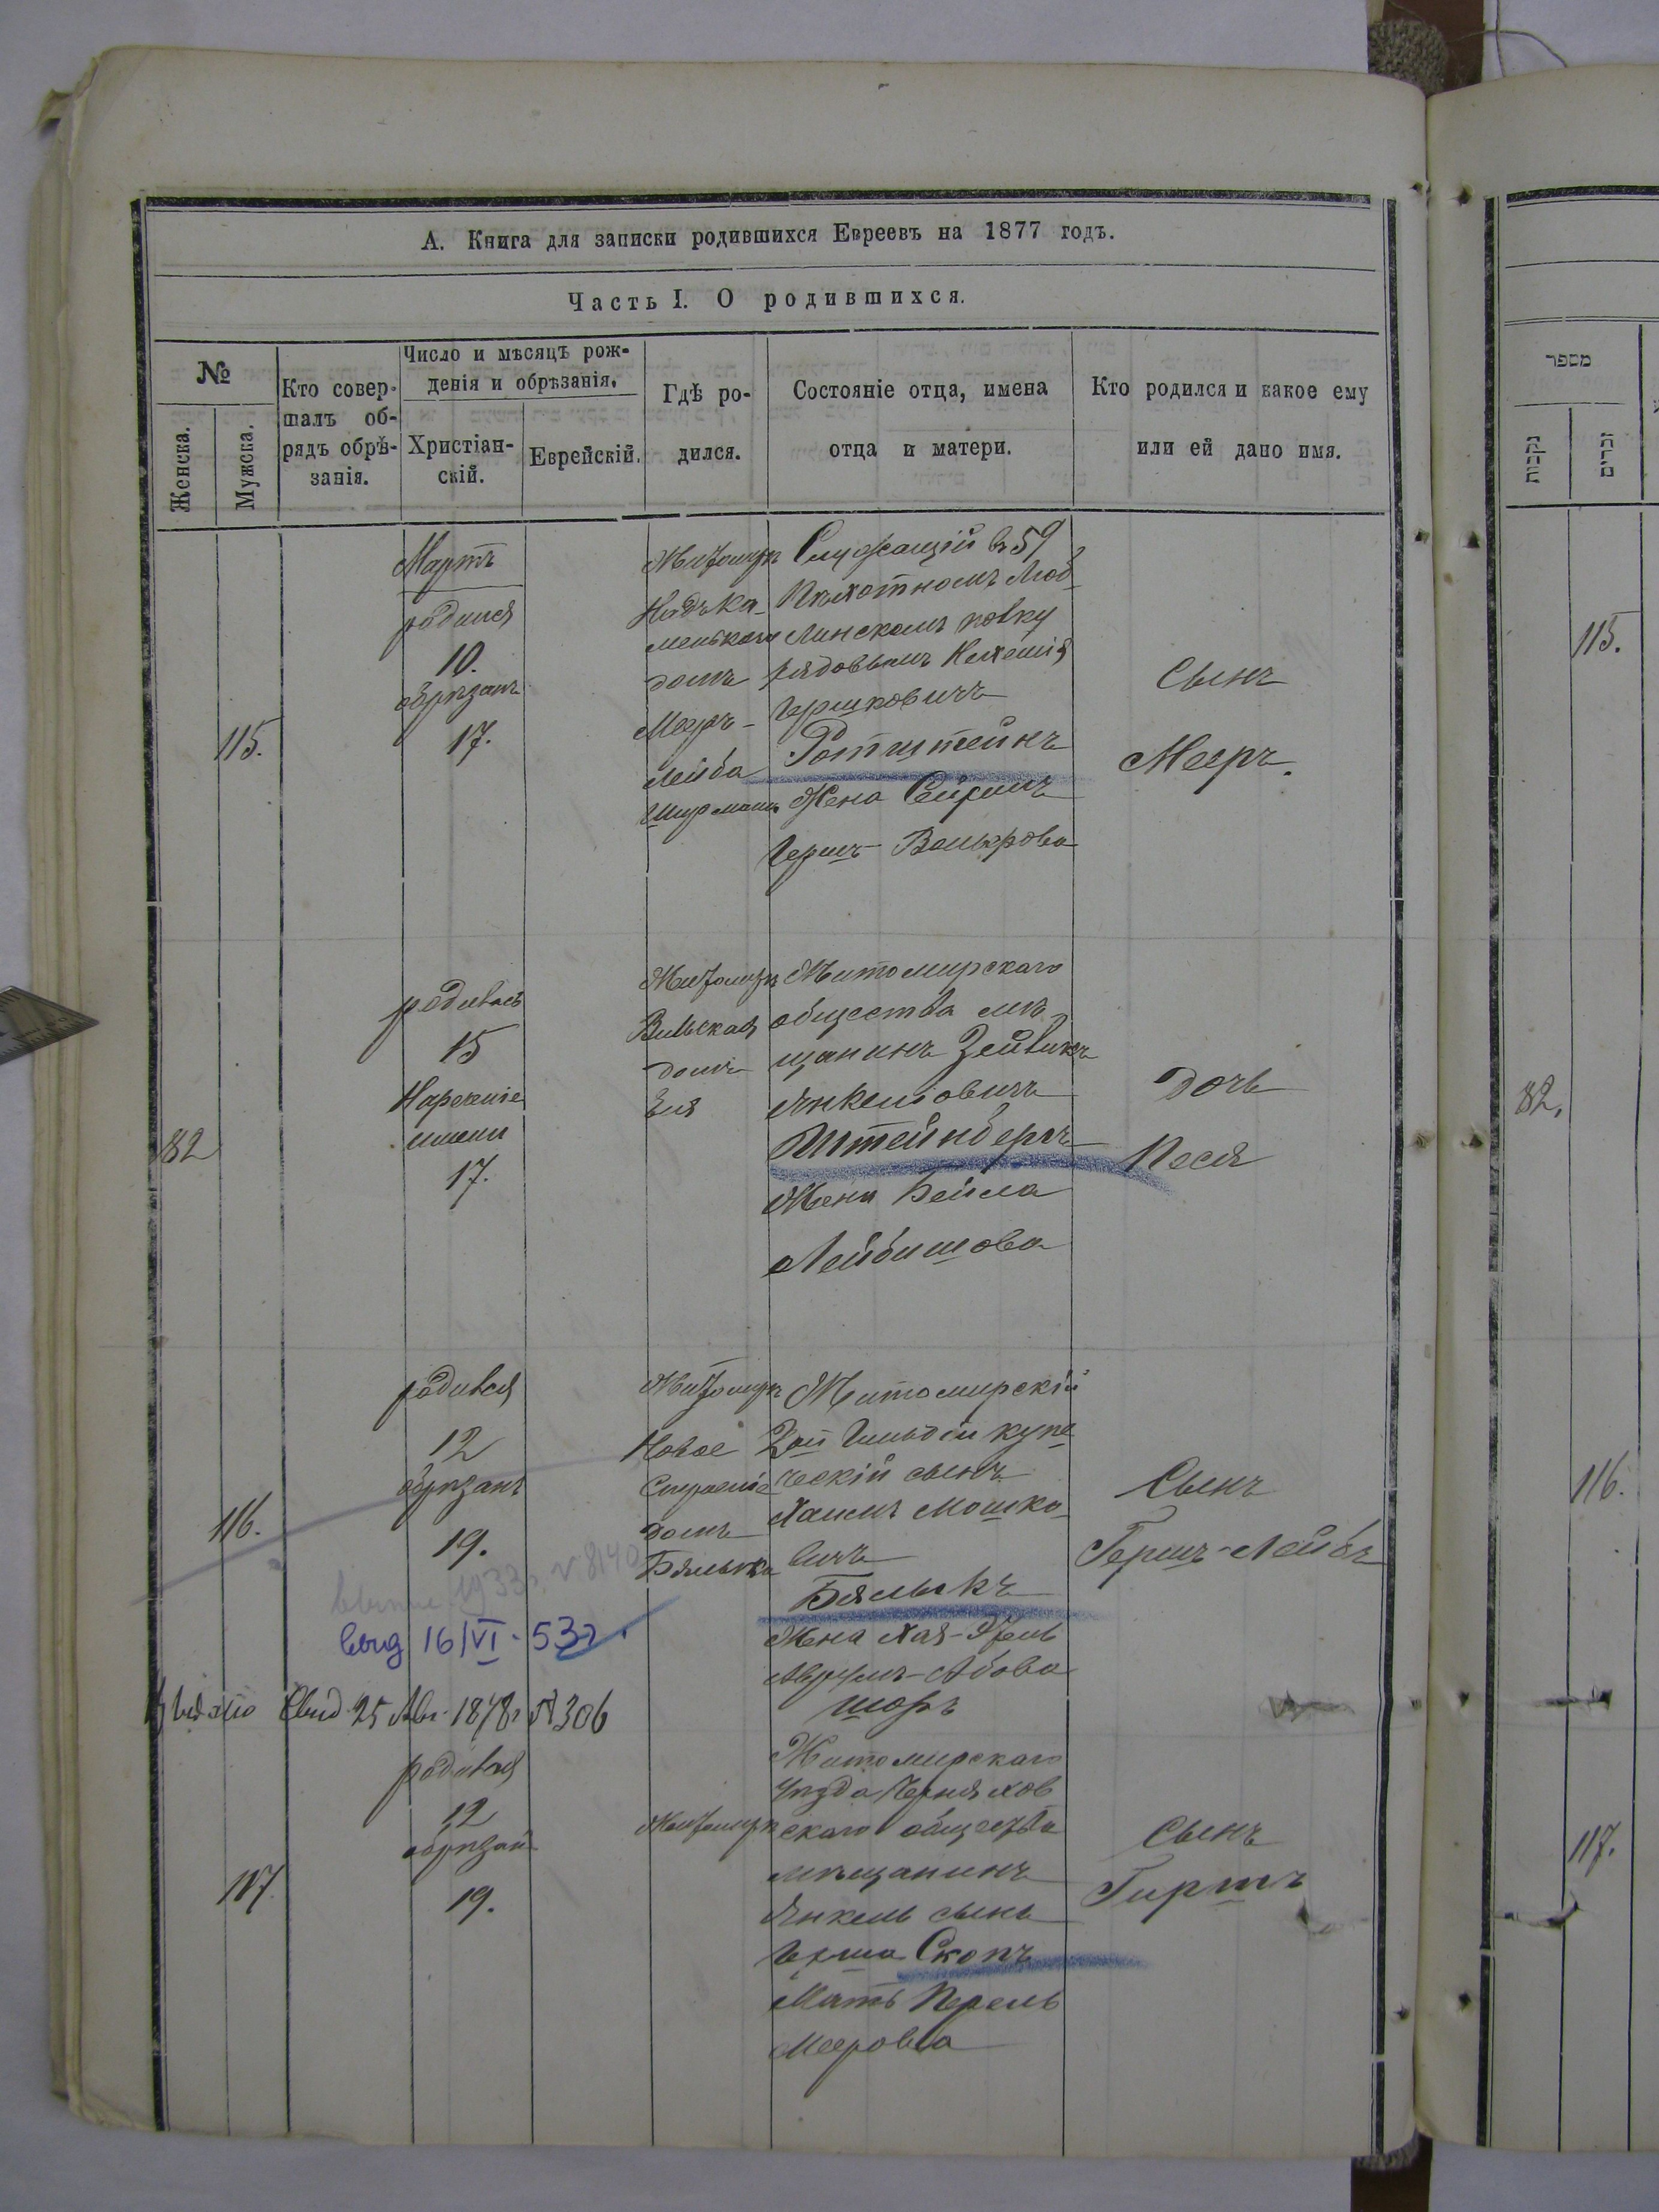 А. Книга для записки родившихся Евреевъ на 1877 годъ.
Часть I. О родившихся.
№
Женска.
Мужска.
Кто совер-
шалъ об-
рядъ обрѣ-
занія.
Число и мѣсяцъ рож-
денія и обрѣзанія.
Христіан-
скій.
Еврейскій.
Гдѣ ро-
дился.
Состояніе отца, имена
отца и матери.
Кто родился и какое ему
или ей дано имя.
115.
Мартъ
родился
10.
обрѣзанъ
17.
Житомиръ
Надъ Ка-
менькою
домъ
Мееръ-
Лейба
Служащій въ 59
Пѣхотномъ Люб-
линскомъ полку
рядовымъ
Гершковичъ
Ротштейнъ
Жена
Гершъ-
Сынъ
Мееръ.
82
родилась
15
Нареченіе
имени
17.
Житомиръ
Вильская
домъ
Житомирскаго
общества мѣ-
щанинъ
Янкелiовичъ
Штейнбергъ
Жена Бейла
Лейбишова
Дочь
Песя
116.
родился
12
обрѣзанъ
19.
Житомиръ
Новое
Строеніе
домъ
Бялыка
Житомирскій
2ой Гильдіи купе
ческій сынъ
Хаимъ Мошко
вичъ
Бялыкъ
Жена Хая-
Шоръ
Сынъ
Гершъ-Лейбъ
1933г. № 8140
выд 16/VI - 53г.
Выдано Свид 25 Авг. 1878г № 306
117.
родился
12
обрѣзан
19.
Житомиръ
Житомирскаго
уѣзда Чернихов
скаго общества
мѣщанинъ
Янкель сынъ
Герша Скопъ
Мать Перель
Мееровна
Сынъ
Гиршъ
מספר
נקבות
זכרים
115.
82.
116.
117.